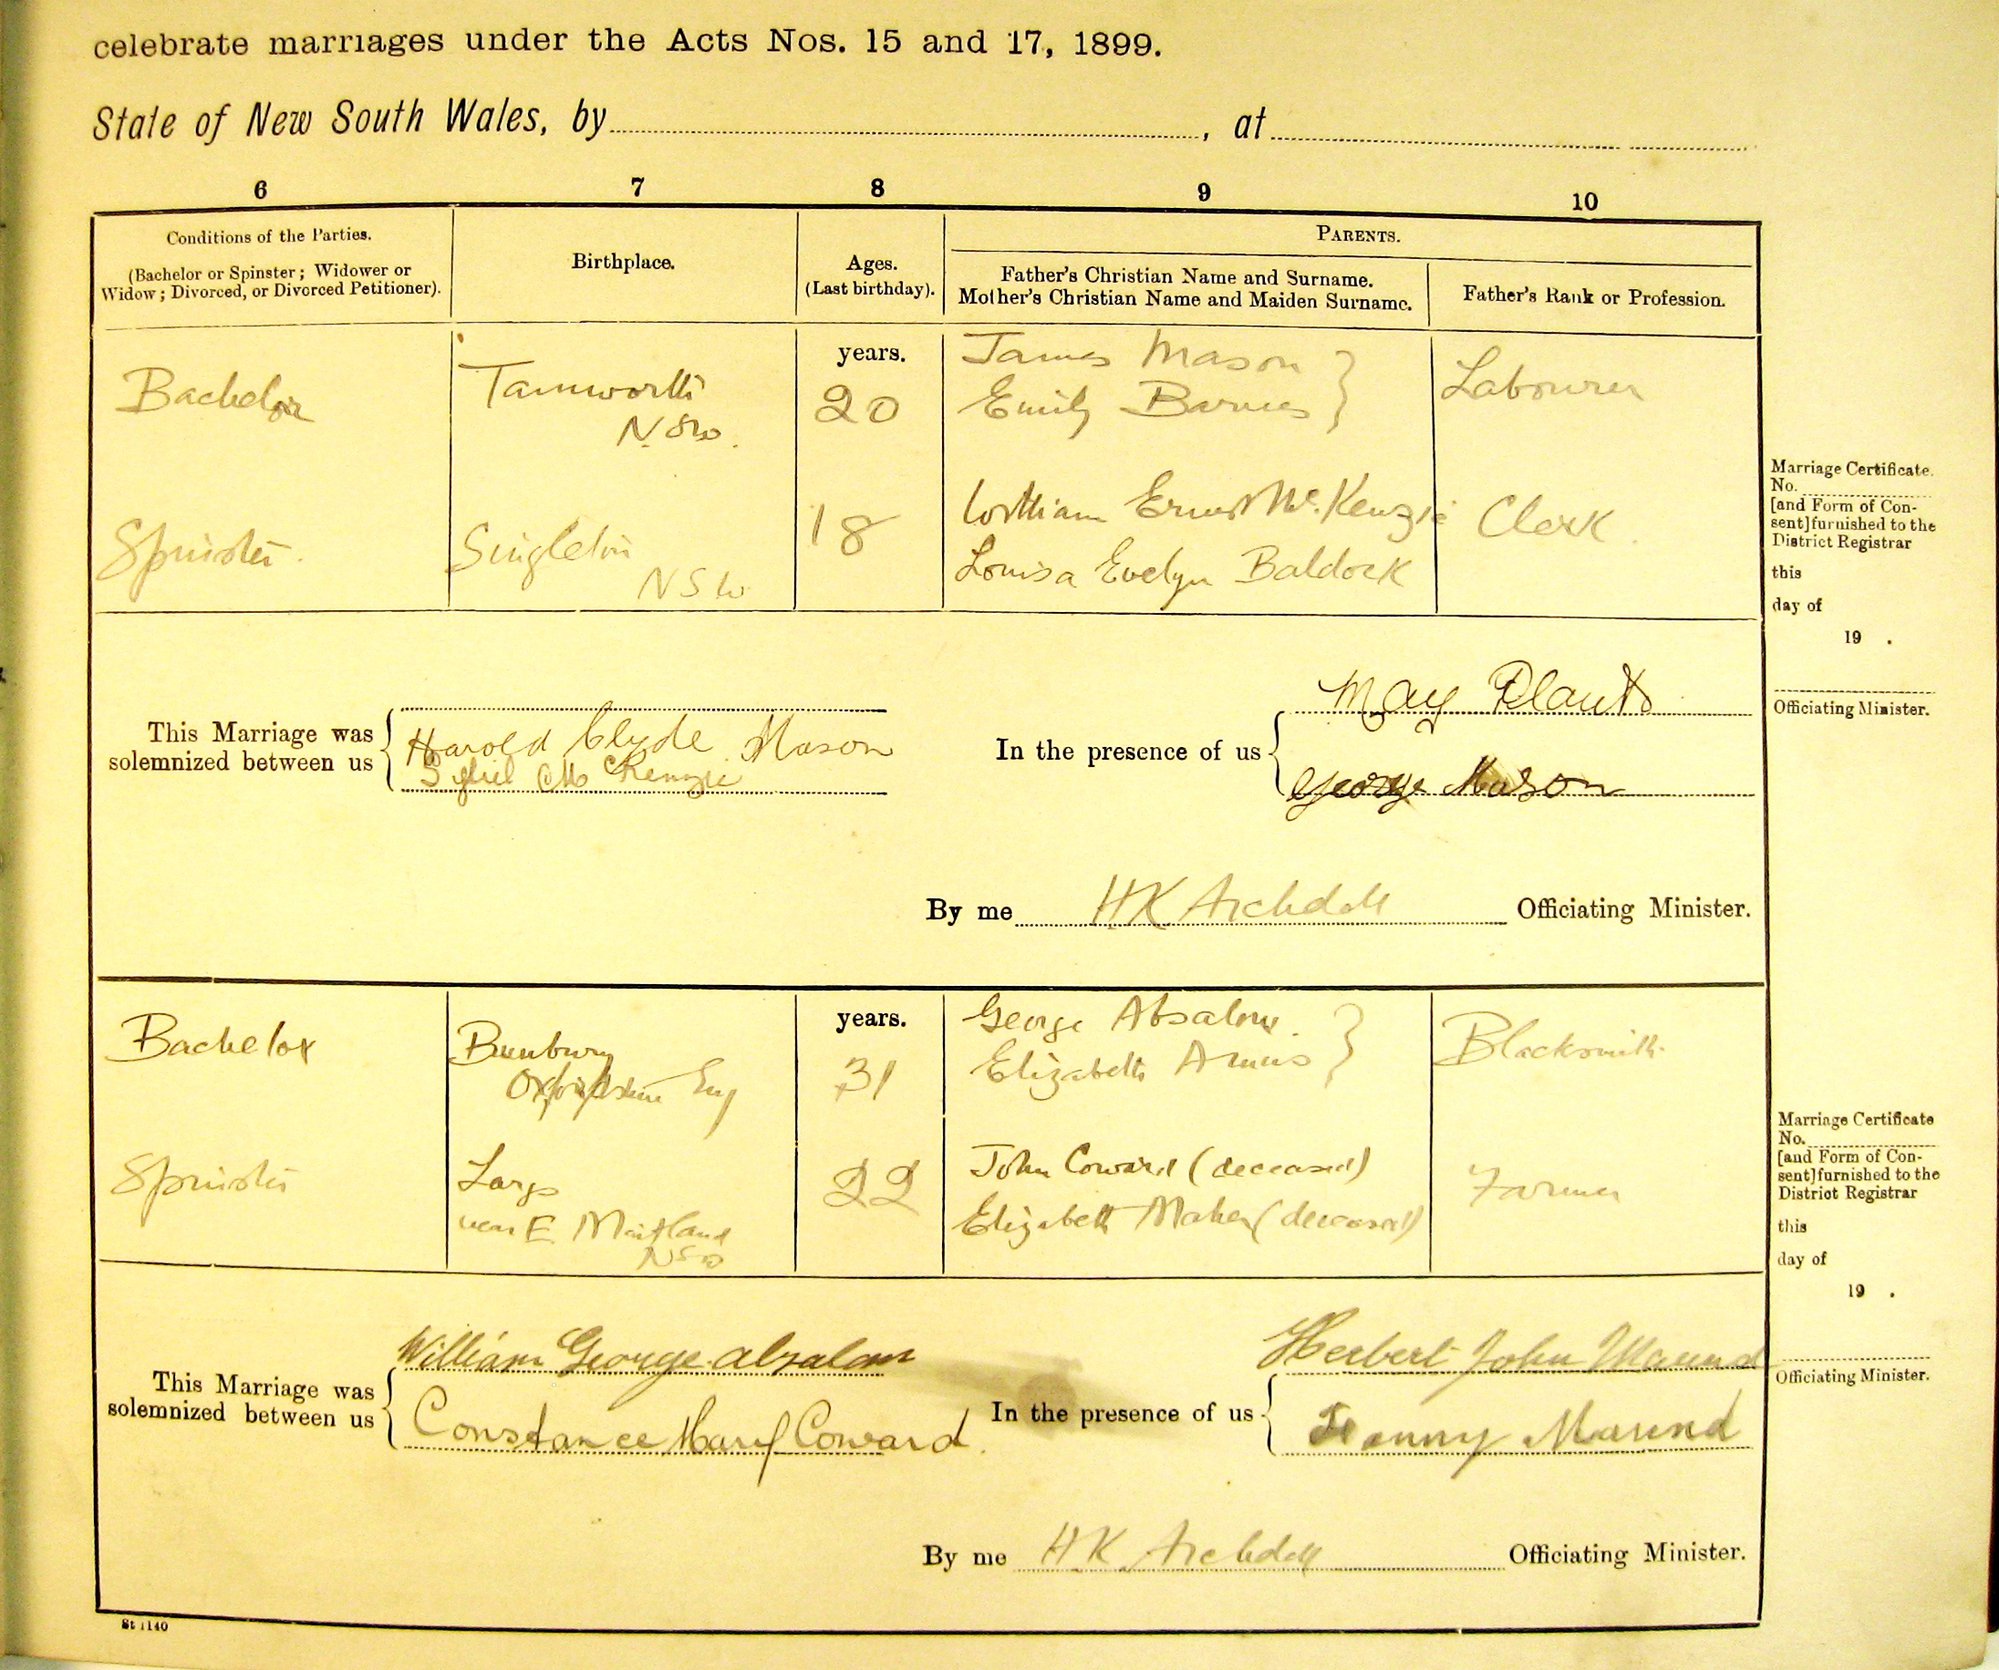 celebrate marriages under the Acts Nos. 15 and 17, 1899.
State of New South Wales, by , at
6 7 8 9 10
Conditions of the Parties.
(Bachelor or Spinster; Widower or
Widow; Divorced, or Divorced Petitioner).
Birthplace.
Ages.
(Last birthday).
PARENTS.
Father's Christian Name and Surname.
Mother's Christian Name and Maiden Surname.
Father's Rank or Profession.
Bachelor
Tamworth
NSW.
years.
20
James Mason
Emily Barnes
Labourer
Spinster
Singleton
NSW
18
William Ernest McKenzie
Louisa Evelyn Baldock
Clerk
Marriage Certificate.
No.
[and Form of Con-
sent] furnished to the
District Registrar
this
day of
19 .
Officiating Minister.
This Marriage was
solemnized between us
Harold Clyde Mason
McKenzie
In the presence of us
May
George Mason
By me HK Archdall Officiating Minister.
Bachelor
Bunbury
Oxfordshire Eng
years.
31
George Absalom
Elizabeth
Blacksmith
Spinster
Largs
near E. Maitland
NSW
22
John Coward (deceased)
Elizabeth Maher (deceased)
Farmer
Marriage Certificate
No.
[and Form of Con-
sent] furnished to the
District Registrar
this
day of
19 .
Officiating Minister.
This Marriage was
solemnized between us
William George Absalom
Constance Mary Coward.
In the presence of us
Herbert John Maund
Fanny Maund
By me HK Archdall Officiating Minister.
St 1140